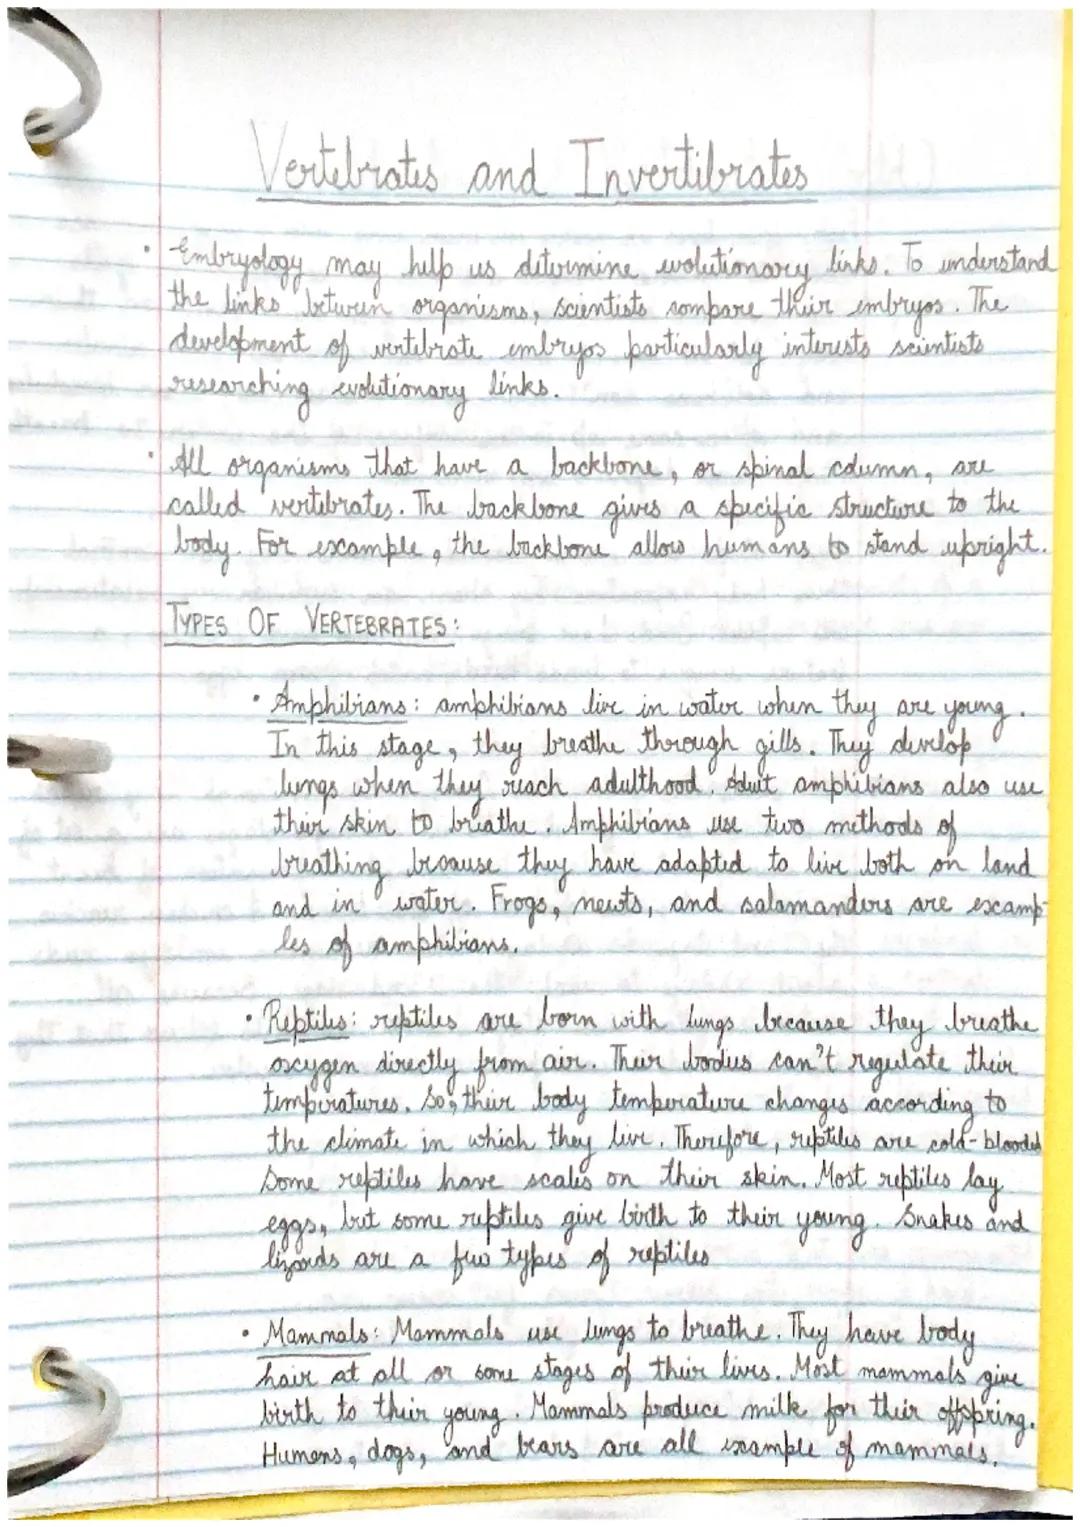 Vertebrates and Invertibrates
• Embryology may help us determine evolutionary links. To understand
the links between organisms, scientists compare their embryos. The
development of vertebrate embryos particularly interests scientists
researching evolutionary links.
• All organisms that have a backbone, or spinal column, are
called vertebrates. The backbone gives a specific structure to the
body. For example, the backbone allows humans to stand upright.
TYPES OF VERTEBRATES:
• Amphibians: amphibians live in water when they are young.
In this stage, they breathe through gills. They develop
lungs when they reach adulthood. Aduit amphibians also use
their skin to breathe. Amphibians use two methods of
breathing because they have adapted to live both on land
and in water. Frogs, newts, and salamanders are examp-
les of amphibians.
• Reptiles: reptiles are born with lungs because they breathe
oxygen directly from air. Their bodies can't regulate their
temperatures. So, their body temperature changes according to
the climate in which they live. Therefore, reptiles are cold-blooded
Some reptiles have scales on their skin. Most reptiles lay
eggs, but some reptiles give birth to their young. Snakes and
lizards are a few types of reptiles
• Mammals: Mammals use lungs to breathe. They have body
hair at all or some stages of their lives. Most mammals give
birth to their young. Mammals produce milk for their offspring.
Humans, dogs, and bears are all example of mammals.